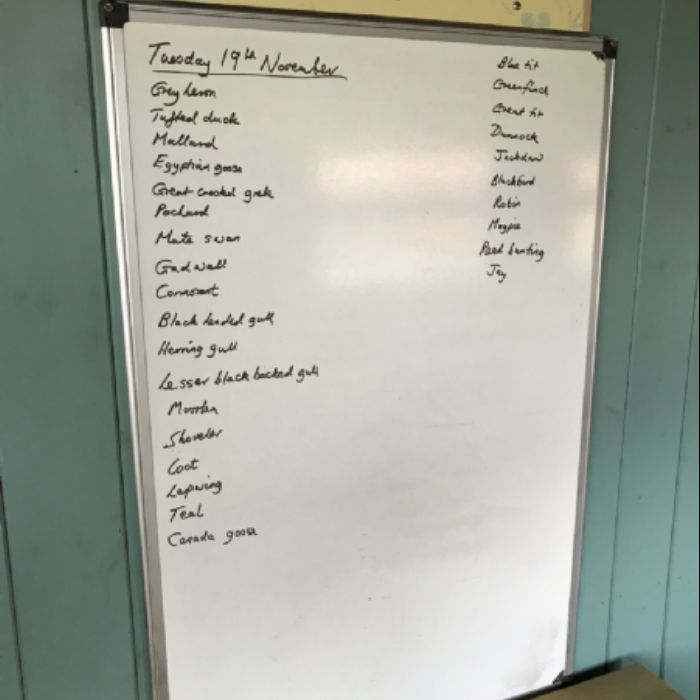 Tuesday 19th November
Grey heron
Tufted duck
Mallard
Egyptian goose
Great crested grebe
Pochard
Mute swan
Gadwall
Cormorant
Black headed gull
Herring gull
Lesser black backed gull
Moorhen
Shoveler
Coot
Lapwing
Teal
Canada goose
Blue tit
Greenfinch
Great tit
Dunnock
Jackdaw
Blackbird
Robin
Magpie
Reed bunting
Jay